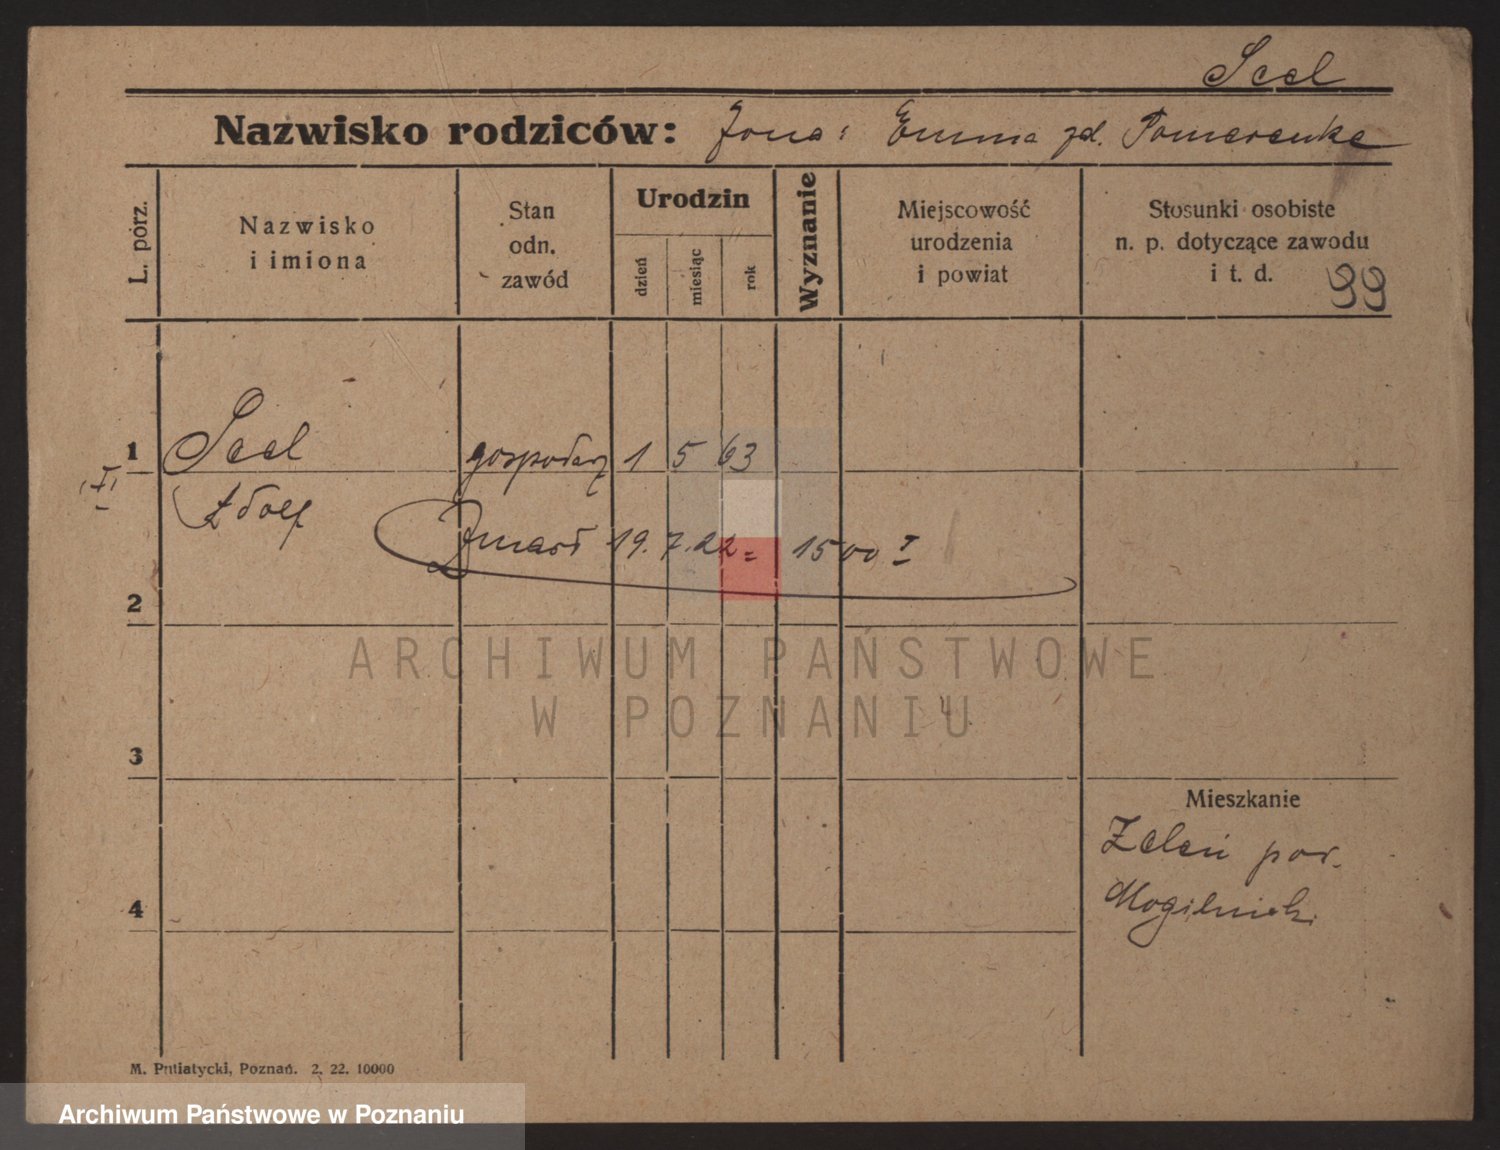 Seel
Nazwisko rodziców: żona: Emma zd. Pomerenke
L. porz.
Nazwisko
i imiona
Stan
odn.
zawód
Urodzin
dzień
miesiąc
rok
Wyznanie
Miejscowość
urodzenia
i powiat
Stosunki osobiste
n. p. dotyczące zawodu
i t. d.
99
1 Seel gospodarz 1 5 63
Adolf
Zmarł 19. 7. 22 = 1500
2
3
4
Mieszkanie
Zeleń pow.
Mogilnicki
M. Putiatycki, Poznań. 2. 22. 10000
ARCHIWUM PAŃSTWOWE
W POZNANIU
Archiwum Państwowe w Poznaniu